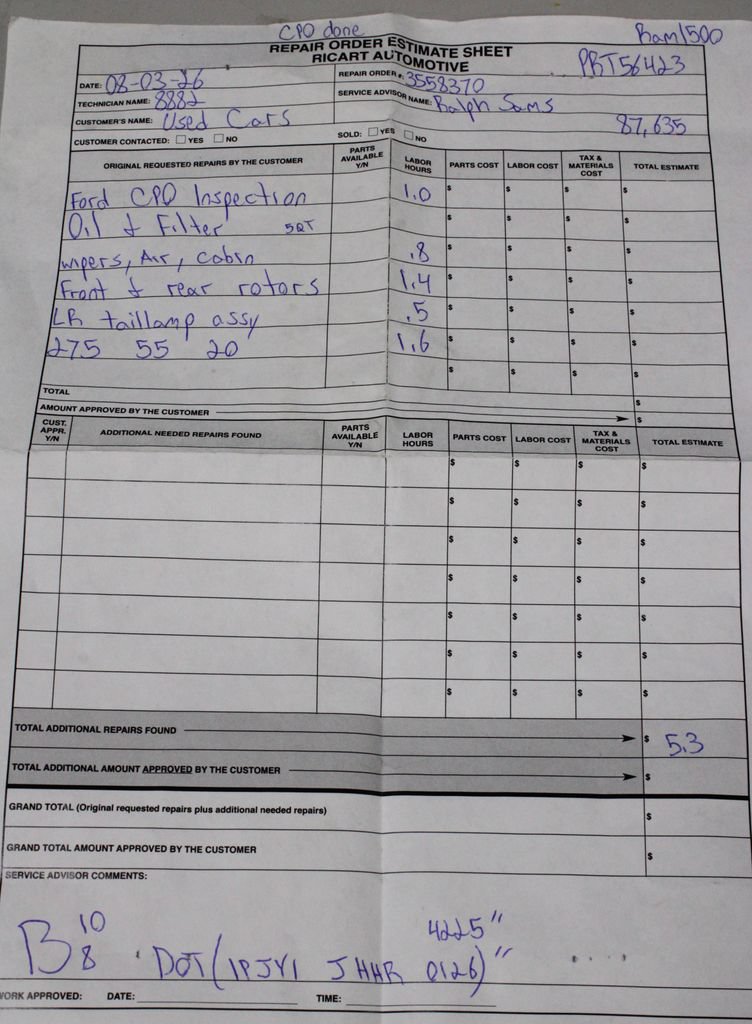 CPO done
Ram1500
REPAIR ORDER ESTIMATE SHEET
RICART AUTOMOTIVE
PRT56423
DATE: 08-03-26
REPAIR ORDER #: 3558370
TECHNICIAN NAME: 8882
SERVICE ADVISOR NAME: Ralph Sams
CUSTOMER'S NAME: Used Cars
87,635
CUSTOMER CONTACTED: YES NO SOLD: YES NO
ORIGINAL REQUESTED REPAIRS BY THE CUSTOMER PARTS AVAILABLE Y/N LABOR HOURS PARTS COST LABOR COST TAX & MATERIALS COST TOTAL ESTIMATE
Ford CPO Inspection 1.0 $ $ $ $
Oil & Filter 5QT $ $ $ $
wipers, Air, Cabin .8 $ $ $ $
Front & rear rotors 1.4 $ $ $ $
LR taillamp assy .5 $ $ $ $
275 55 20 1.6 $ $ $ $
$ $ $ $
TOTAL $
AMOUNT APPROVED BY THE CUSTOMER $
CUST. APPR. Y/N ADDITIONAL NEEDED REPAIRS FOUND PARTS AVAILABLE Y/N LABOR HOURS PARTS COST LABOR COST TAX & MATERIALS COST TOTAL ESTIMATE
$ $ $ $
$ $ $ $
$ $ $ $
$ $ $ $
$ $ $ $
$ $ $ $
$ $ $ $
TOTAL ADDITIONAL REPAIRS FOUND $ 5.3
TOTAL ADDITIONAL AMOUNT APPROVED BY THE CUSTOMER $
GRAND TOTAL (Original requested repairs plus additional needed repairs) $
GRAND TOTAL AMOUNT APPROVED BY THE CUSTOMER $
SERVICE ADVISOR COMMENTS:
B 10 8 4225"
DOT (1PJY1 JHHR 0126)"
WORK APPROVED: DATE: TIME: